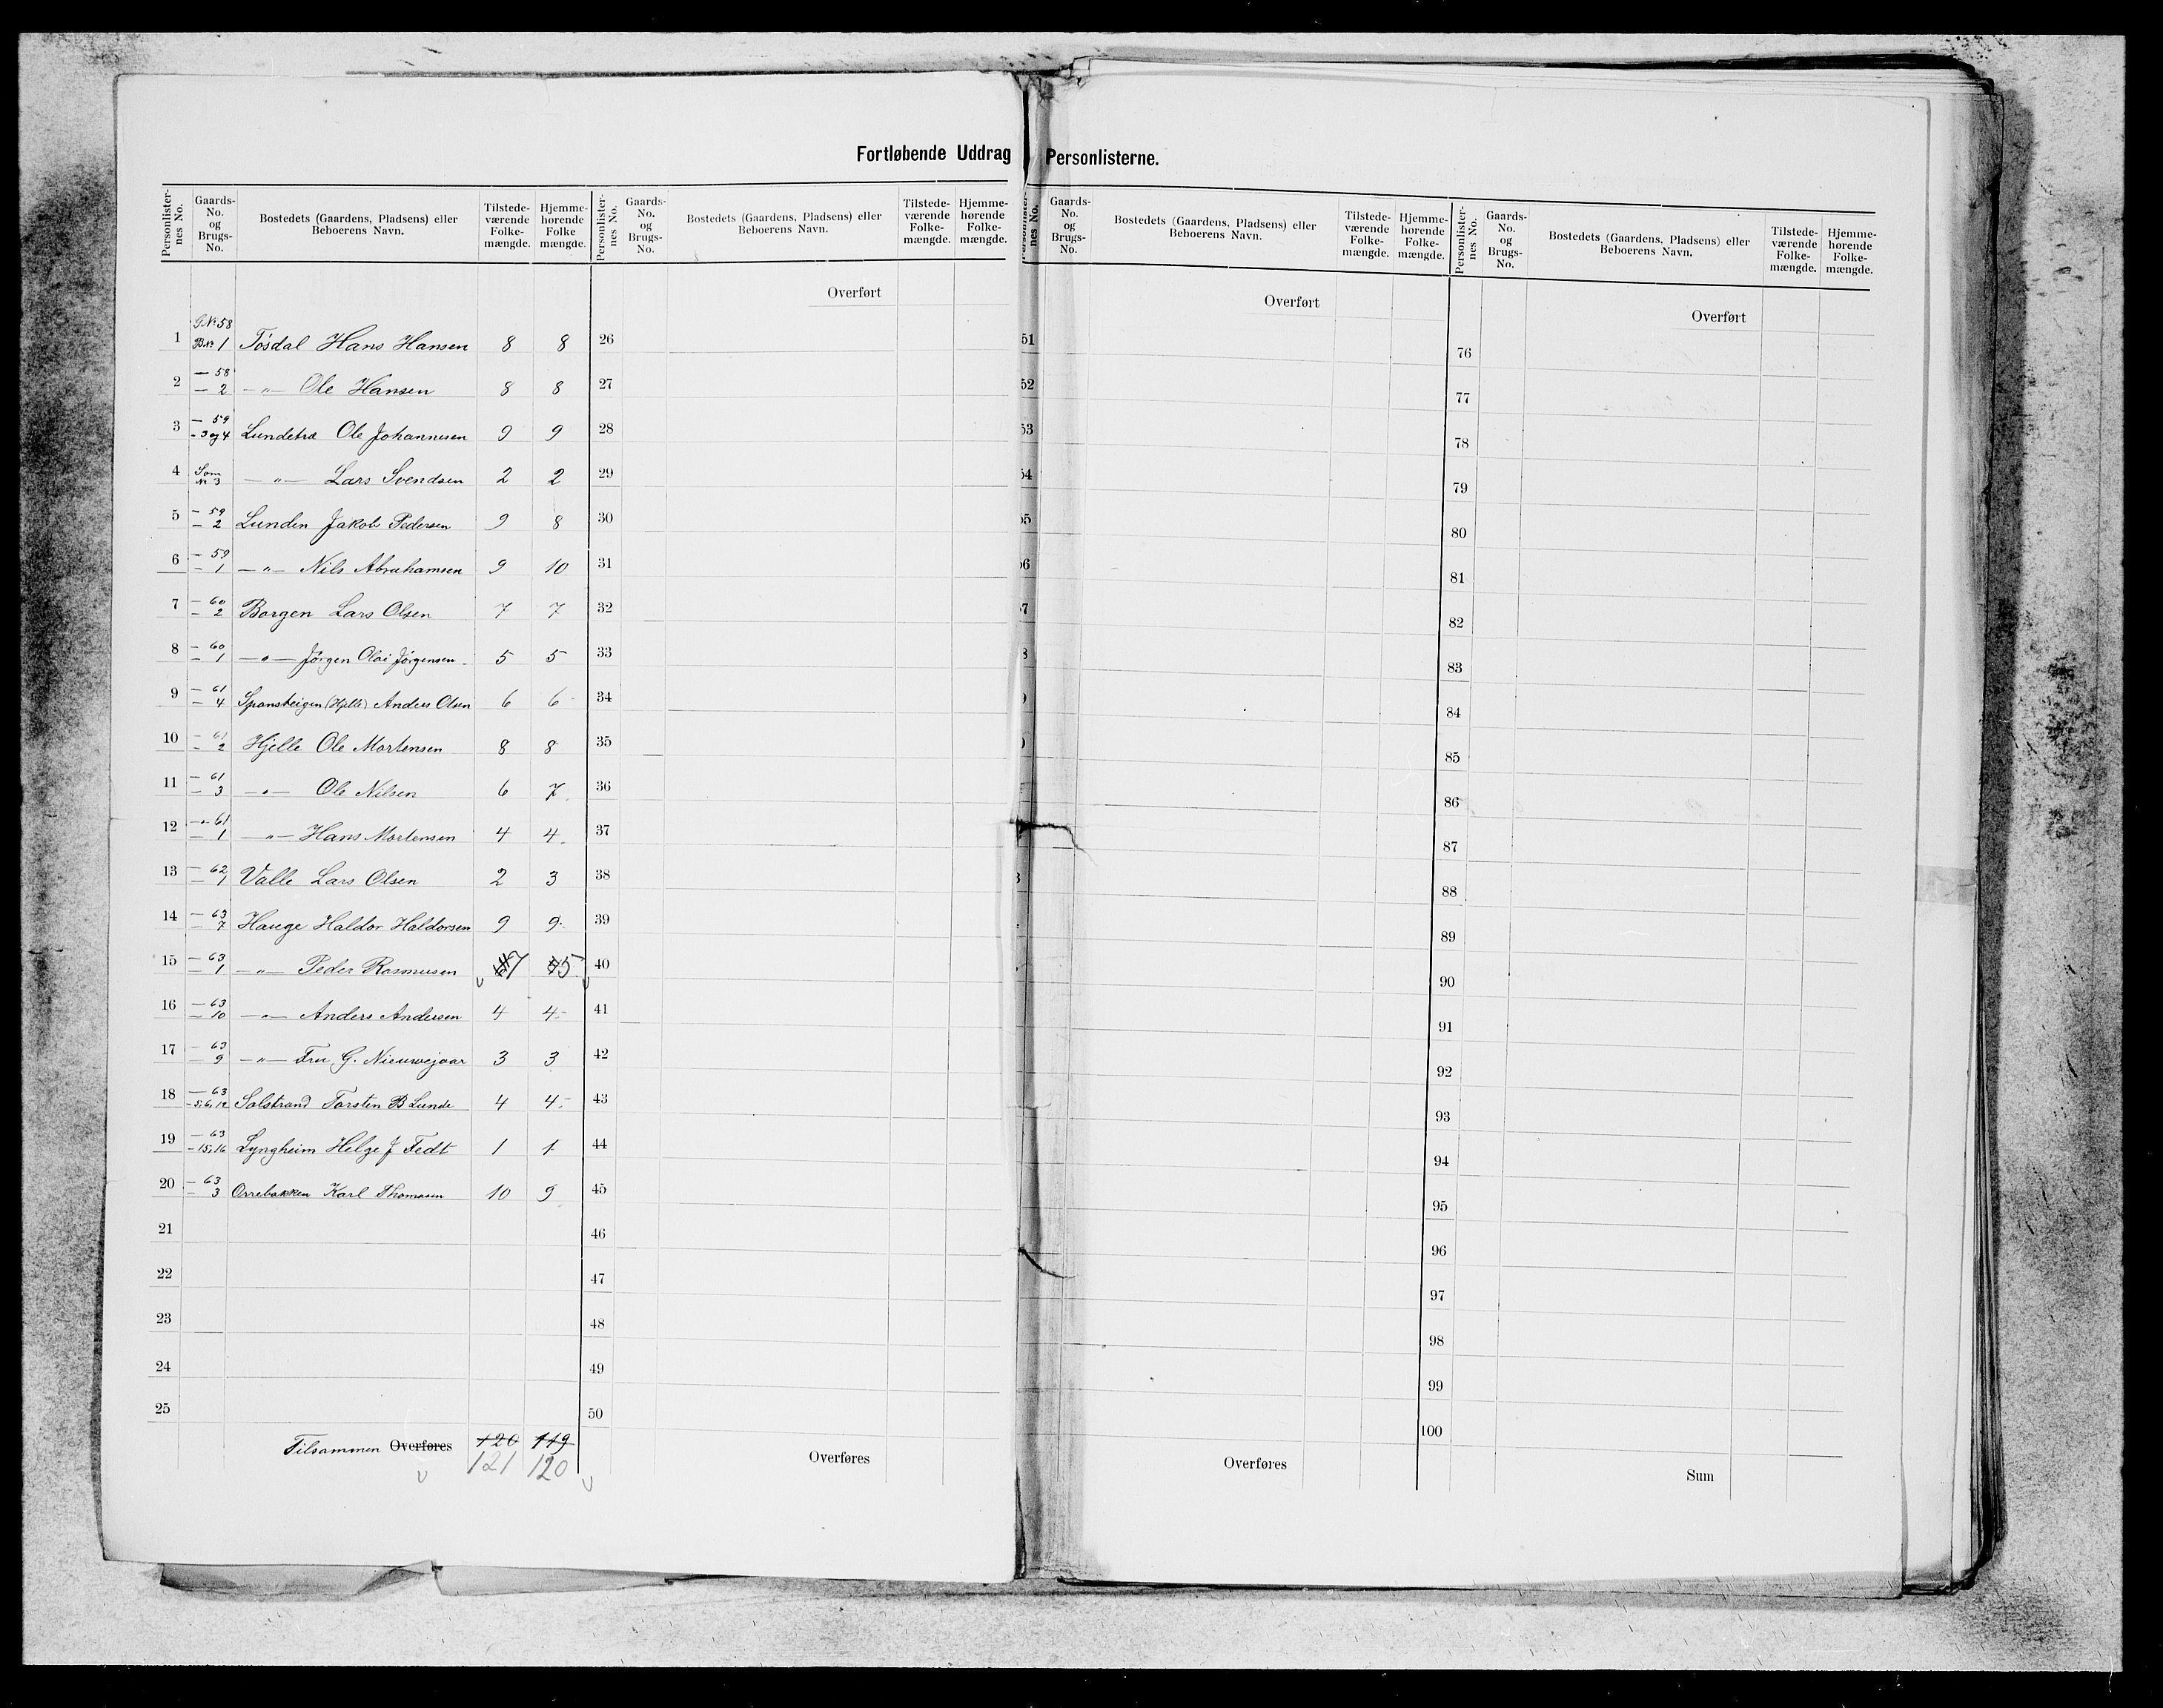 Fortløbende Uddrag Personlisterne.
Personlister-nes No. Gaards-No. og Brugs-No. Bostedets (Gaardens, Pladsens) eller Beboerens Navn. Tilstede-værende Folke-mængde. Hjemme-hørende Folke mængde.
Personlister-nes No. Gaards-No. og Brugs-No. Bostedets (Gaardens, Pladsens) eller Beboerens Navn. Tilstede-værende Folke-mængde. Hjemme-hørende Folke-mængde.
nes No. Gaards-No. og Brugs-No. Bostedets (Gaardens, Pladsens) eller Beboerens Navn. Tilstede-værende Folke-mængde. Hjemme-hørende Folke-mængde.
Personlister-nes No. Gaards-No. og Brugs-No. Bostedets (Gaardens, Pladsens) eller Beboerens Navn. Tilstede-værende Folke-mængde. Hjemme-hørende Folke-mængde.
G.No 58
1 B.No 1 Tösdal Hans Hansen 8 8
2 — 58 — 2 —"— Ole Hansen 8 8
3 — 59 - 3 og 4 Lundetræ Ole Johannesen 9 9
4 Som No 3 —"— Lars Svendsen 2 2
5 — 59 — 2 Lunden Jakob Pedersen 9 8
6 — 59 — 1 —"— Nils Abrahamsen 9 10
7 — 60 — 2 Borgen Lars Olsen 7 7
8 — 60 — 1 —"— Jörgen Olai Jörgensen 5 5
9 — 61 — 4 Spansteigen (Hjelle) Anders Olsen 6 6
10 — 61 — 2 Hjelle Ole Mortensen 8 8
11 — 61 — 3 —"— Ole Nilsen 6 7
12 — 61 — 1 —"— Hans Mortensen 4 4
13 — 62 — 1 Valle Lars Olsen 2 3
14 — 63 — 7 Hauge Haldor Haldorsen 9 9
15 — 63 — 1 —"— Peder Rasmusen 7 5
16 — 63 — 10 —"— Anders Andersen 4 4
17 — 63 — 9 —"— Fru G. Nieuwejaar 3 3
18 — 63 - 5,6,12 Solstrand Torsten B Lunde 4 4
19 — 63 - 15,16 Lyngheim Helge J Fedt 1 1
20 — 63 — 3 Orrebakken Karl Thomasen 10 9
21
22
23
24
25
Tilsammen Overføres 120 119
121 120
Overført
26
27
28
29
30
31
32
33
34
35
36
37
38
39
40
41
42
43
44
45
46
47
48
49
50
Overføres
Overført
51
52
53
54
55
56
57
8
Overføres
Overført
76
77
78
79
80
81
82
83
84
85
86
87
88
89
90
91
92
93
94
95
96
97
98
99
100
Sum